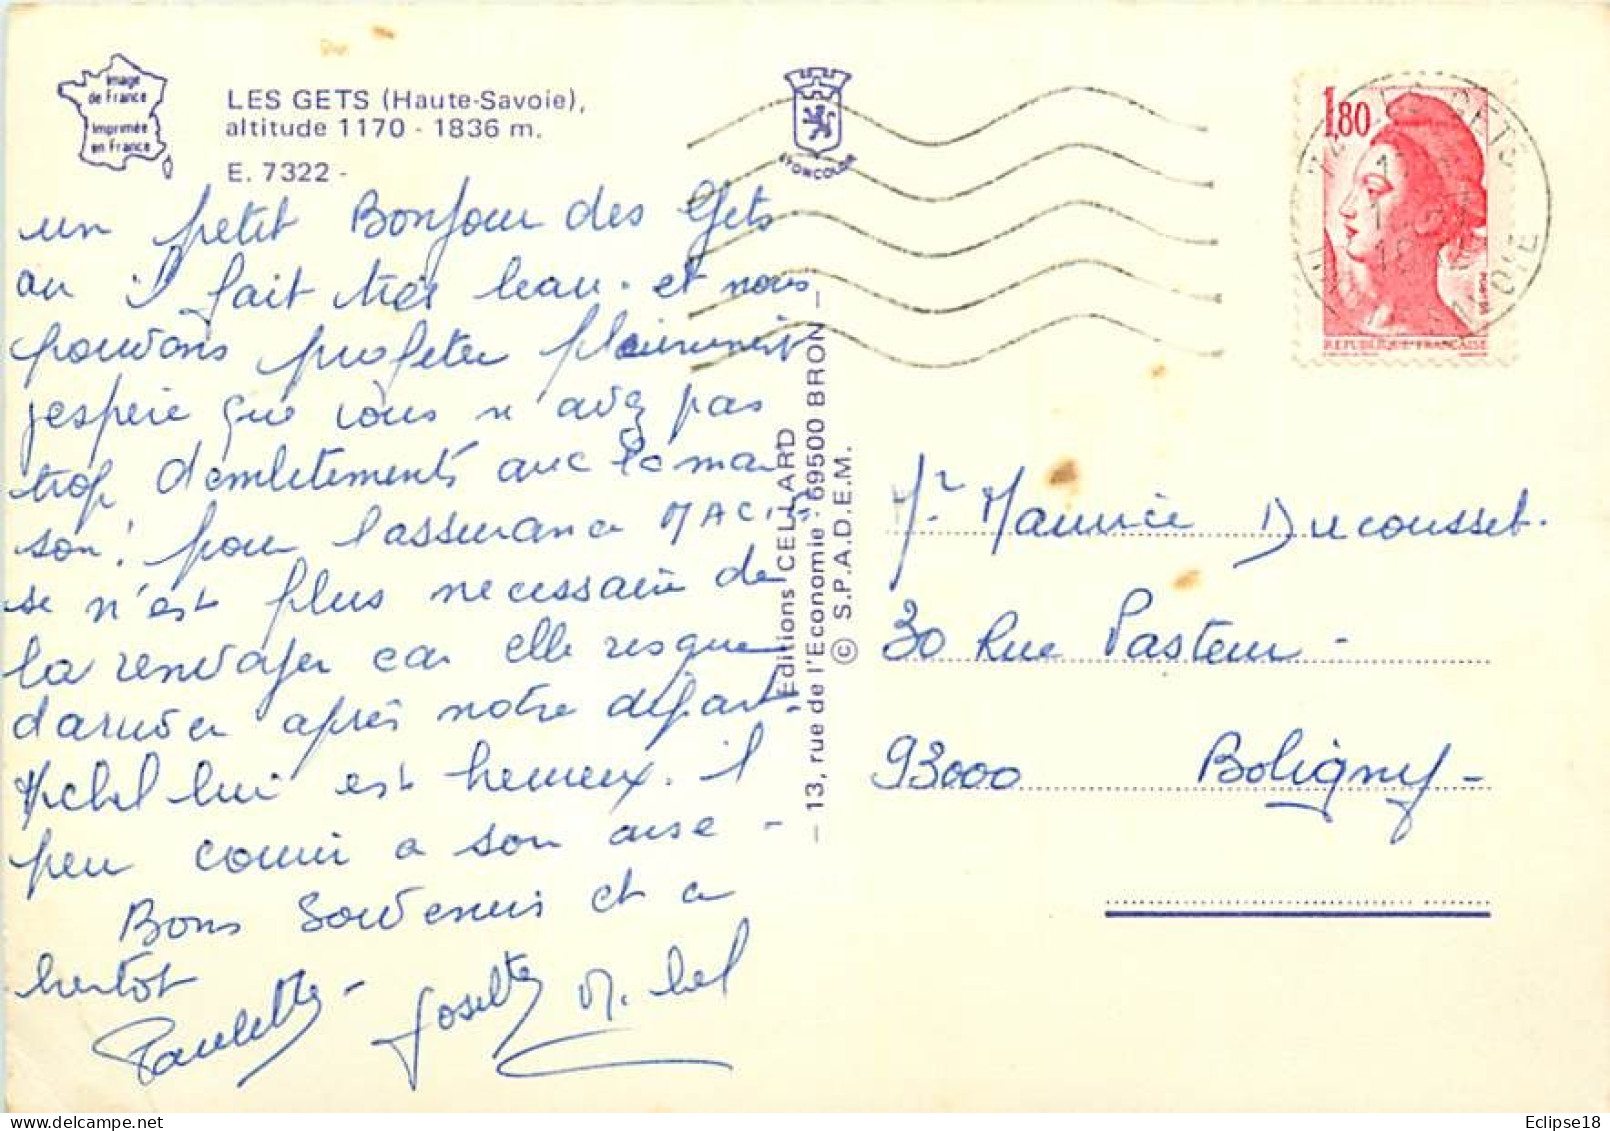 Image
de France
Imprimée
en France
LES GETS (Haute-Savoie),
altitude 1170 - 1836 m.
E. 7322 -
un petit Bonjour des Gets
au il fait très beau. et nous
pouvons profeter pleinement
jespère que vous n avez pas
trop d'embetements avec la mai
son! pour l'assurance MACIF
se n'est plus necessaire de
la renvoyer car elle risque
d'arriver après notre départ.
Michel lui est heureux. il
peu courir a son aise -
Bons Souvenirs et a
bientot
Paulette - Josette Michel
LYONCOLOR
Editions CELLARD
- 13, rue de l'Economie - 69500 BRON -
© S.P.A.D.E.M.
1,80
REPUBLIQUE FRANCAISE
Mr Maurice Ducousset.
30 Rue Pasteur -
93000 Boligny -
Eclipse18